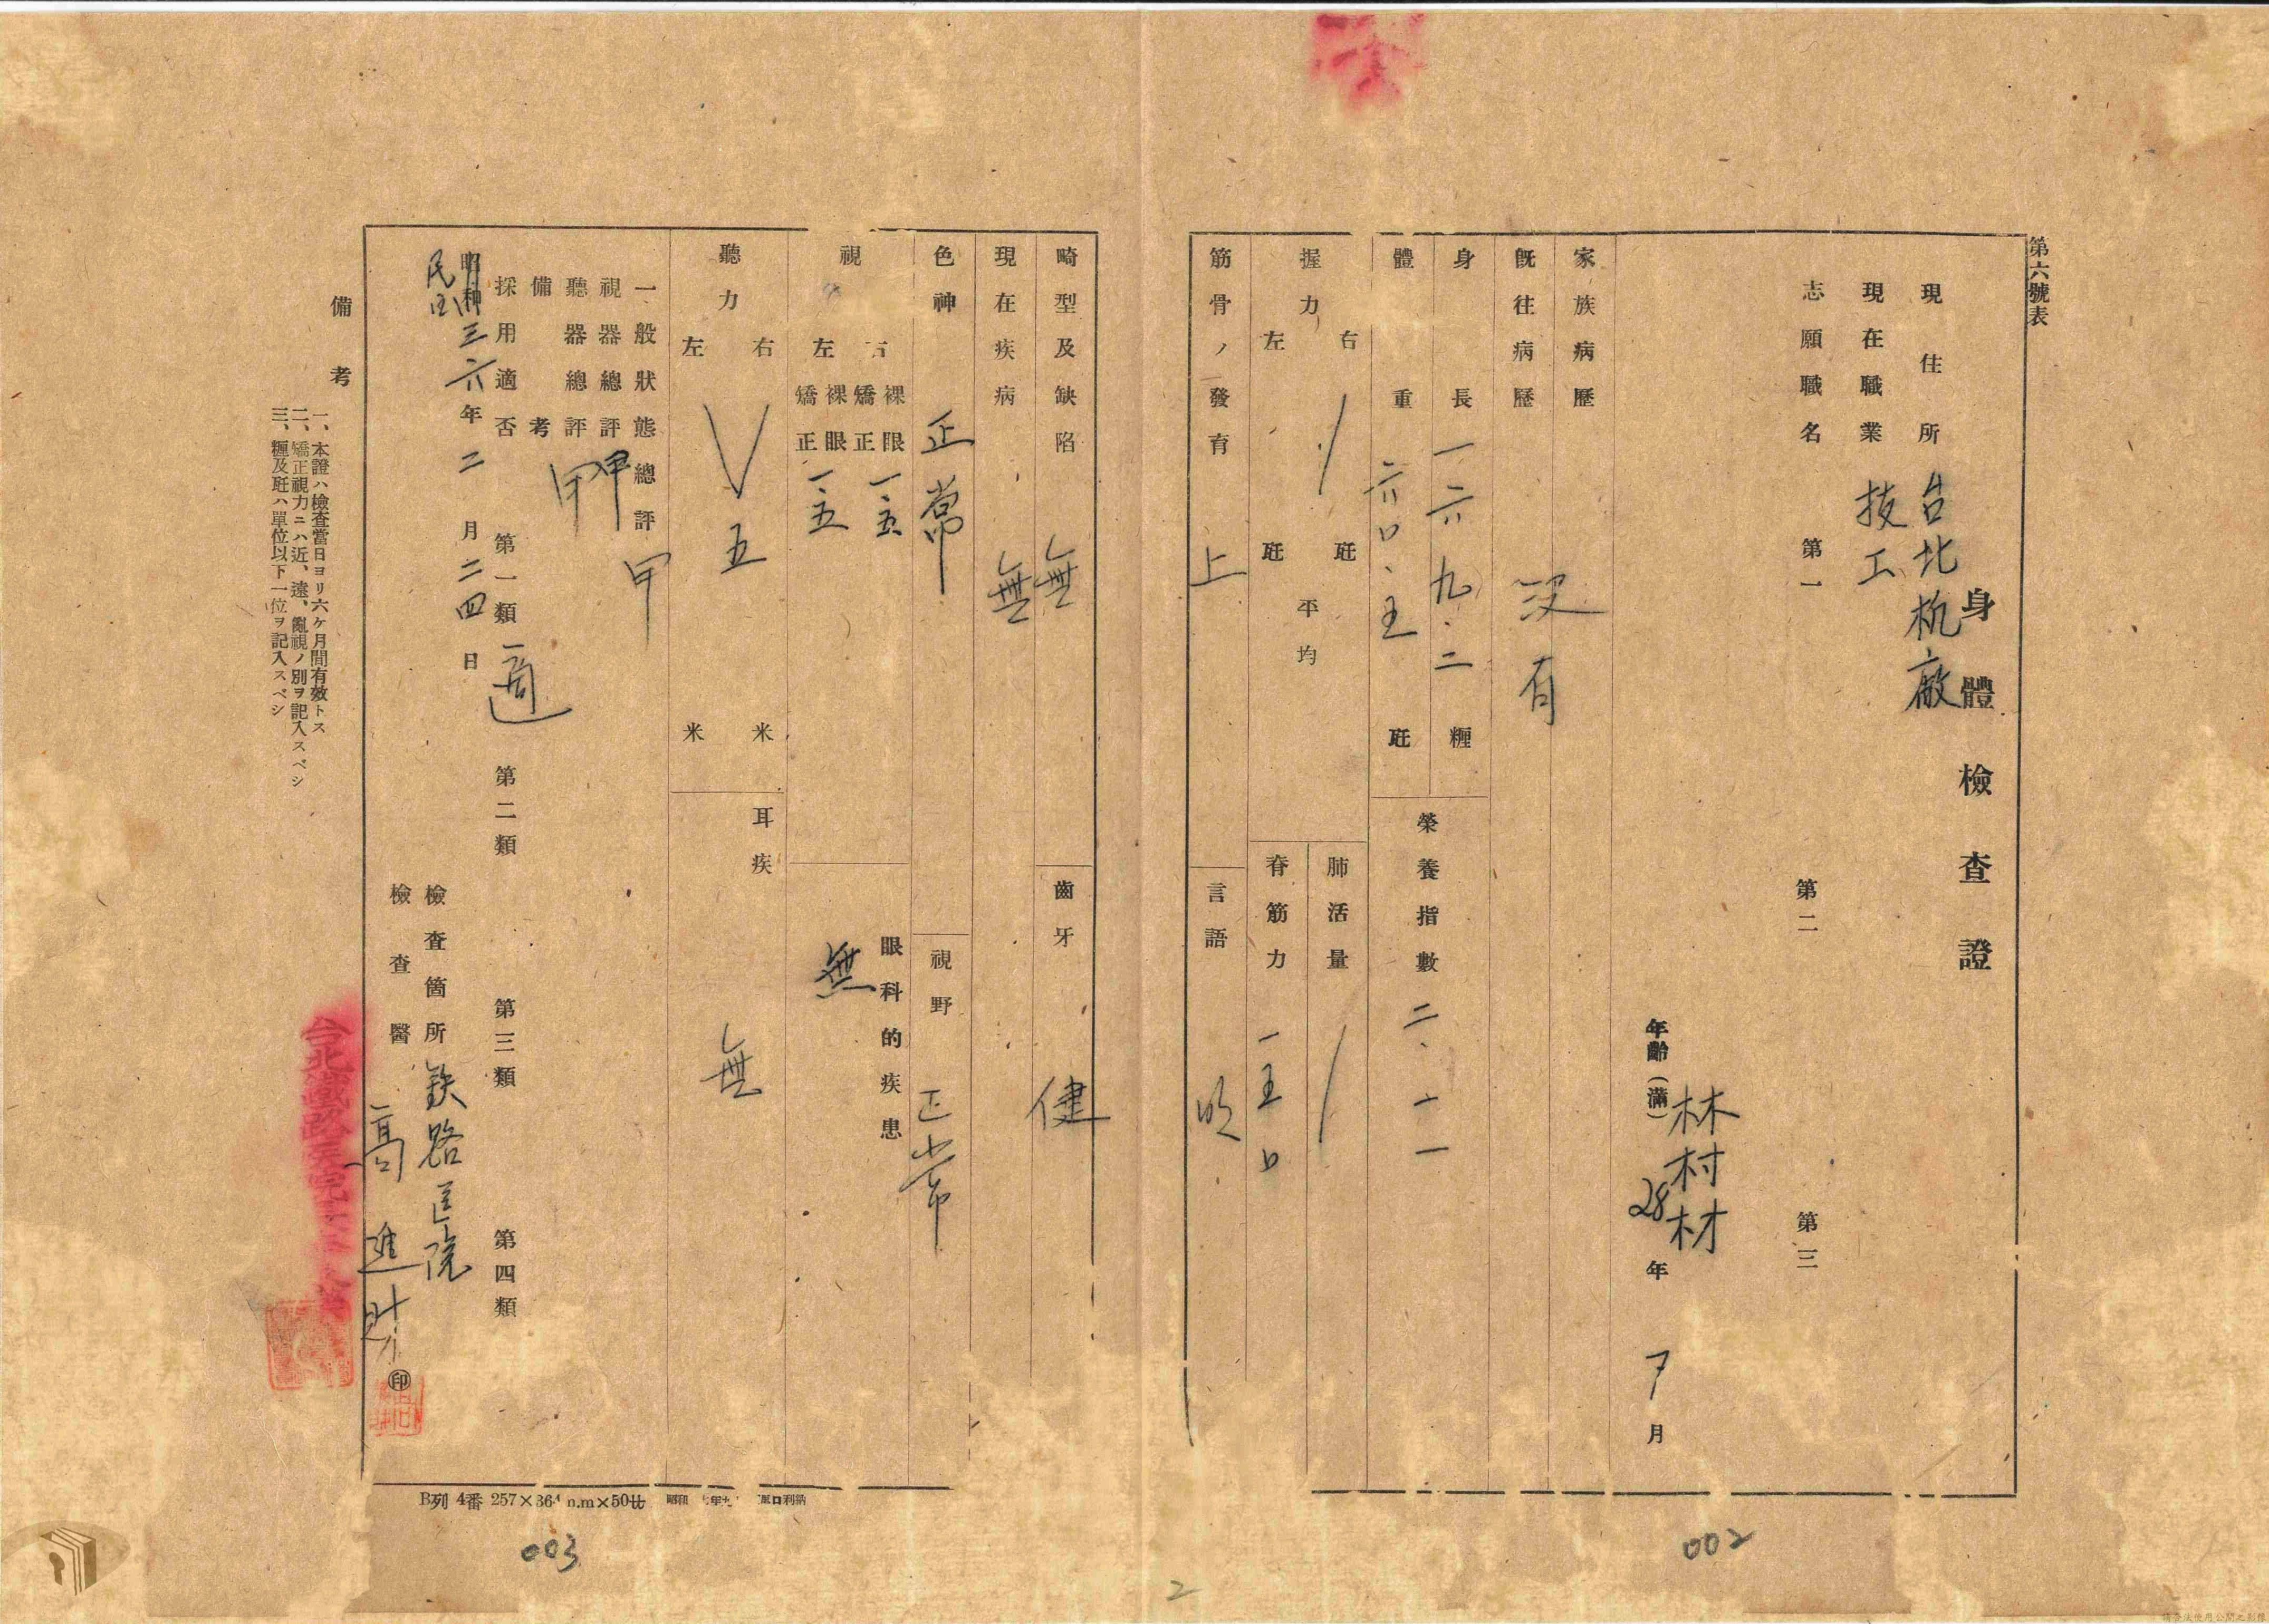 第六號表
身體檢查證
現住所 台北机廠
現在職業 技工
志願職名 第一 第二 第三
林村材
年齡(滿) 28年 7月
家族病歷
既往病歷 沒有
身長 一六九.二 糎
體重 六〇.五 瓩
榮養指數 二.一一
握力 右 瓩 左 瓩 平均
肺活量
脊筋力 一五〇
筋骨ノ發育 上
言語 明
畸型及缺陷 無
齒牙 健
現在疾病 無
色神 正常
視野 正常
視 右 裸眼 一.五 矯正
左 裸眼 一.五 矯正
眼科的疾患 無
聽力 右 米 左 米 五
耳疾 無
一般狀態總評 甲
視器總評 甲
聽器總評 甲
備考
採用適否 第一類 適 第二類 第三類 第四類
昭和 民国 三六年 二月 二四日
檢查箇所 鉄路医院
檢查醫 高進財 ㊞
備考
一、本證ハ檢查當日ヨリ六ケ月間有效トス
二、矯正視力ニハ近、遠、亂視ノ別ヲ記入スベシ
三、糎及瓩ハ單位以下一位ヲ記入スベシ
B列 4番 257×364
003
002
2